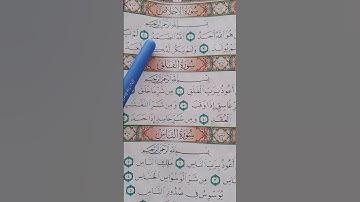 سُورَةُ الإِخْلَاصِ
بِسْمِ اللَّهِ الرَّحْمَٰنِ الرَّحِيمِ
هُوَ اللَّهُ أَحَدٌ ١ اللَّهُ الصَّمَدُ ٢ لَمْ
يُولَدْ ٣ وَلَمْ يَكُن
سُورَةُ الفَلَقِ
بِسْمِ اللَّهِ الرَّحْمَٰنِ الرَّحِيمِ
أَعُوذُ بِرَبِّ الْفَلَقِ ١ مِن شَرِّ مَا خَلَقَ
غَاسِقٍ إِذَا وَقَبَ ٣ وَمِن شَرِّ النَّفَّاثَاتِ
الْعُقَدِ ٤ وَمِن شَرِّ حَاسِدٍ إِذَا حَسَدَ
سُورَةُ النَّاسِ
بِسْمِ اللَّهِ الرَّحْمَٰنِ الرَّحِيمِ
أَعُوذُ بِرَبِّ النَّاسِ ١ مَلِكِ النَّاسِ
مِن شَرِّ الْوَسْوَاسِ الْخَنَّاسِ
يُوَسْوِسُ فِي صُدُورِ النَّاسِ